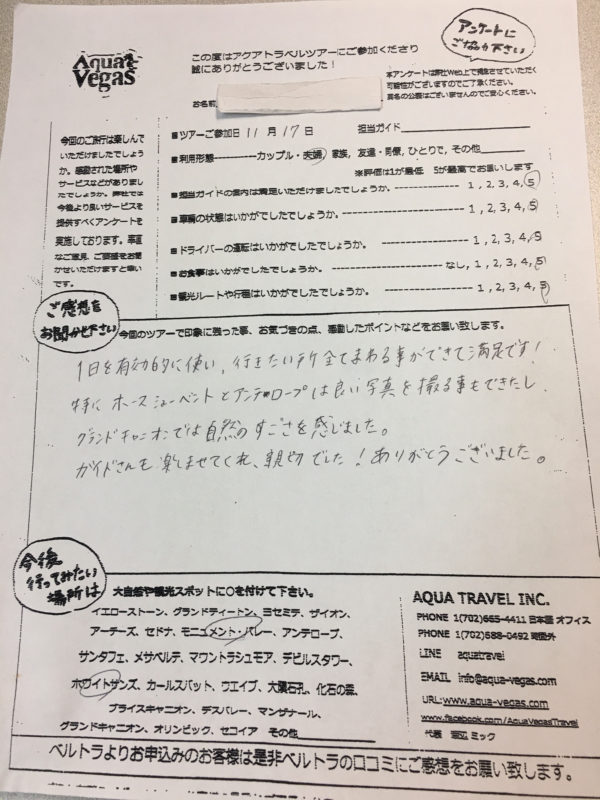 Aqua Vegas
この度はアクアトラベルツアーにご参加くださり
誠にありがとうございました！
アンケートに
ご協力下さい
本アンケートは弊社Web上で掲載させていただく
可能性がございますのでご了承ください。
実名の公表はございませんのでご安心ください。
お名前
今回のご旅行は楽しんで
いただけましたでしょう
か。感動された場所や
サービスなどがありまし
たでしょうか。弊社では
今後より良いサービスを
提供すべくアンケートを
実施しております。率直
なご意見、ご要望をお聞
かせいただけますと幸い
です。
■ツアーご参加日 11月 17日 担当ガイド
■利用形態-----------カップル・夫婦, 家族, 友達・同僚, ひとりで, その他
※評価は1が最低 5が最高でお願いします
■担当ガイドの案内は満足いただけましたでしょうか。 ---------- 1, 2, 3, 4, 5
■車輛の状態はいかがでしたでしょうか。 -------------------- 1, 2, 3, 4, 5
■ドライバーの運転はいかがでしたでしょうか。 -------------------- 1, 2, 3, 4, 5
■お食事はいかがでしたでしょうか。 -------------------- なし, 1, 2, 3, 4, 5
■観光ルートや行程はいかがでしたでしょうか。 -------------------- 1, 2, 3, 4, 5
ご感想を
お聞かせ下さい
今回のツアーで印象に残った事、お気づきの点、感動したポイントなどをお願い致します。
1日を有効的に使い、行きたい所全てまわる事ができて満足です！
特に ホースシューベントとアンテロープは良い写真を撮る事もできたし
グランドキャニオンでは自然のすごさを感じました。
ガイドさんも楽しませてくれ、親切でした！ありがとうございました。
今後
行ってみたい
場所は
大自然や観光スポットに○を付けて下さい。
イエローストーン、グランドティートン、ヨセミテ、ザイオン、
アーチーズ、セドナ、モニュメント・バレー、アンテロープ、
サンタフェ、メサベルデ、マウントラシュモア、デビルスタワー、
ホワイトサンズ、カールスバット、ウエイブ、大隕石孔、化石の森、
ブライスキャニオン、デスバレー、マンザナール、
グランドキャニオン、オリンピック、セコイア その他
AQUA TRAVEL INC.
PHONE 1(702)665-4411 日本語 オフィス
PHONE 1(702)688-0492 時間外
LINE aquatravel
EMAIL info@aqua-vegas.com
URL:www.aqua-vegas.com
www.facebook.com/AquaVegasTravel
代表 渡辺 ミック
ベルトラよりお申込みのお客様は是非ベルトラの口コミにご感想をお願い致します。